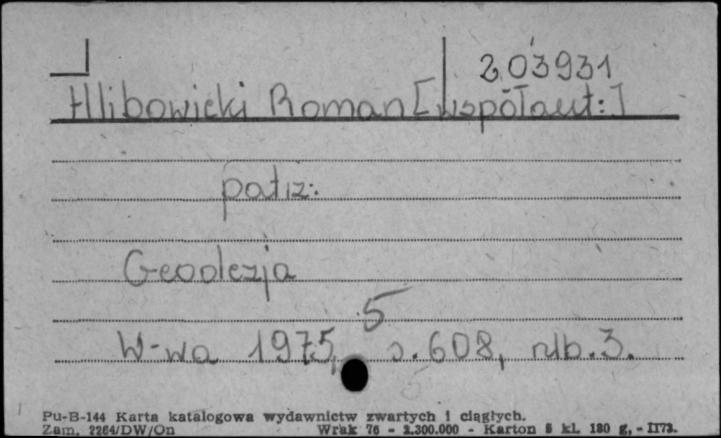 203931
Hlibowicki Roman [współaut:]
patrz:
Geodezja
5
W-wa 1975, s. 608, nlb. 3.
Pu-B-144 Karta katalogowa wydawnictw zwartych i ciągłych.
Zam. 2264/DW/On Wrak 76 - 2.300.000 - Karton 5 kl. 180 g. - II73.